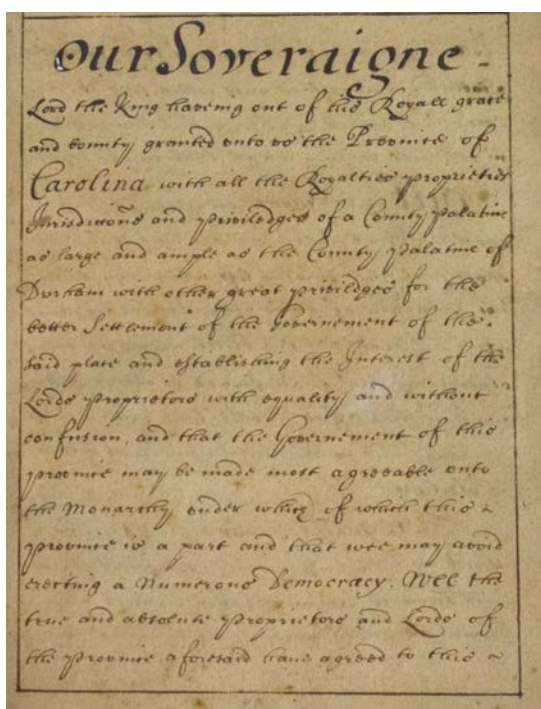 Our Soveraigne -
Lord the King haveing out of his Royall grace
and bounty granted unto us the Province of
Carolina with all the Royalties proprieties
Jurisdictions and priviledges of a County palatine
as large and ample as the County palatine of
Durham with other great priviledges for the
better Settlement of the Governement of the
said place and establishing the Interest of the
Lords proprietors with equality and without
confusion, and that the Governement of this
province may be made most agreeable unto
the Monarchy under which of which this ~
province is a part and that wee may avoid
erecting a Numerous Democracy. Wee the
true and absolute proprietors and Lords of
the province aforesaid have agreed to this ~